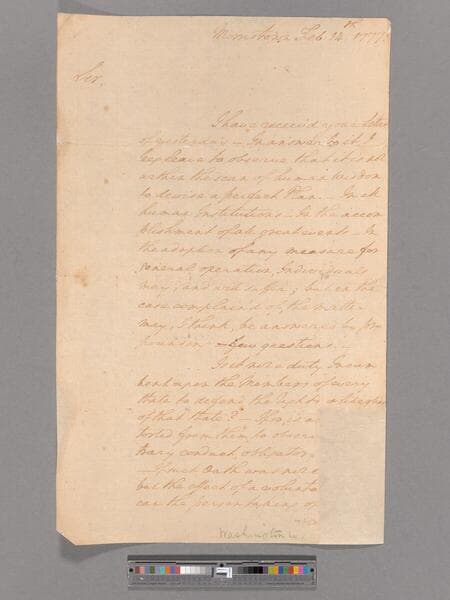 Morristown Feb. 14th 1777.
Sir,
I have received your letter
of yesterday — In answer to it, I
beg leave to observe that it is not
within the scan of human Wisdom
to devise a perfect Plan. — In all
human Institutions — In the accom
plishment of all great events — In
the adoption of any measure for
general operation, Individuals
may, and will suffer; but in the
case complained of, the matter
may, I think, be answered by pro
pounding few questions. —
Is it not a duty Incum
bent upon the Members of every
State to defend the rights & liberties
of that State? — If so, is an
torted from them, to observe
trary conduct, obligatory
— If such Oath was not e
but the effect of a volunta
can the person taking of
Washington